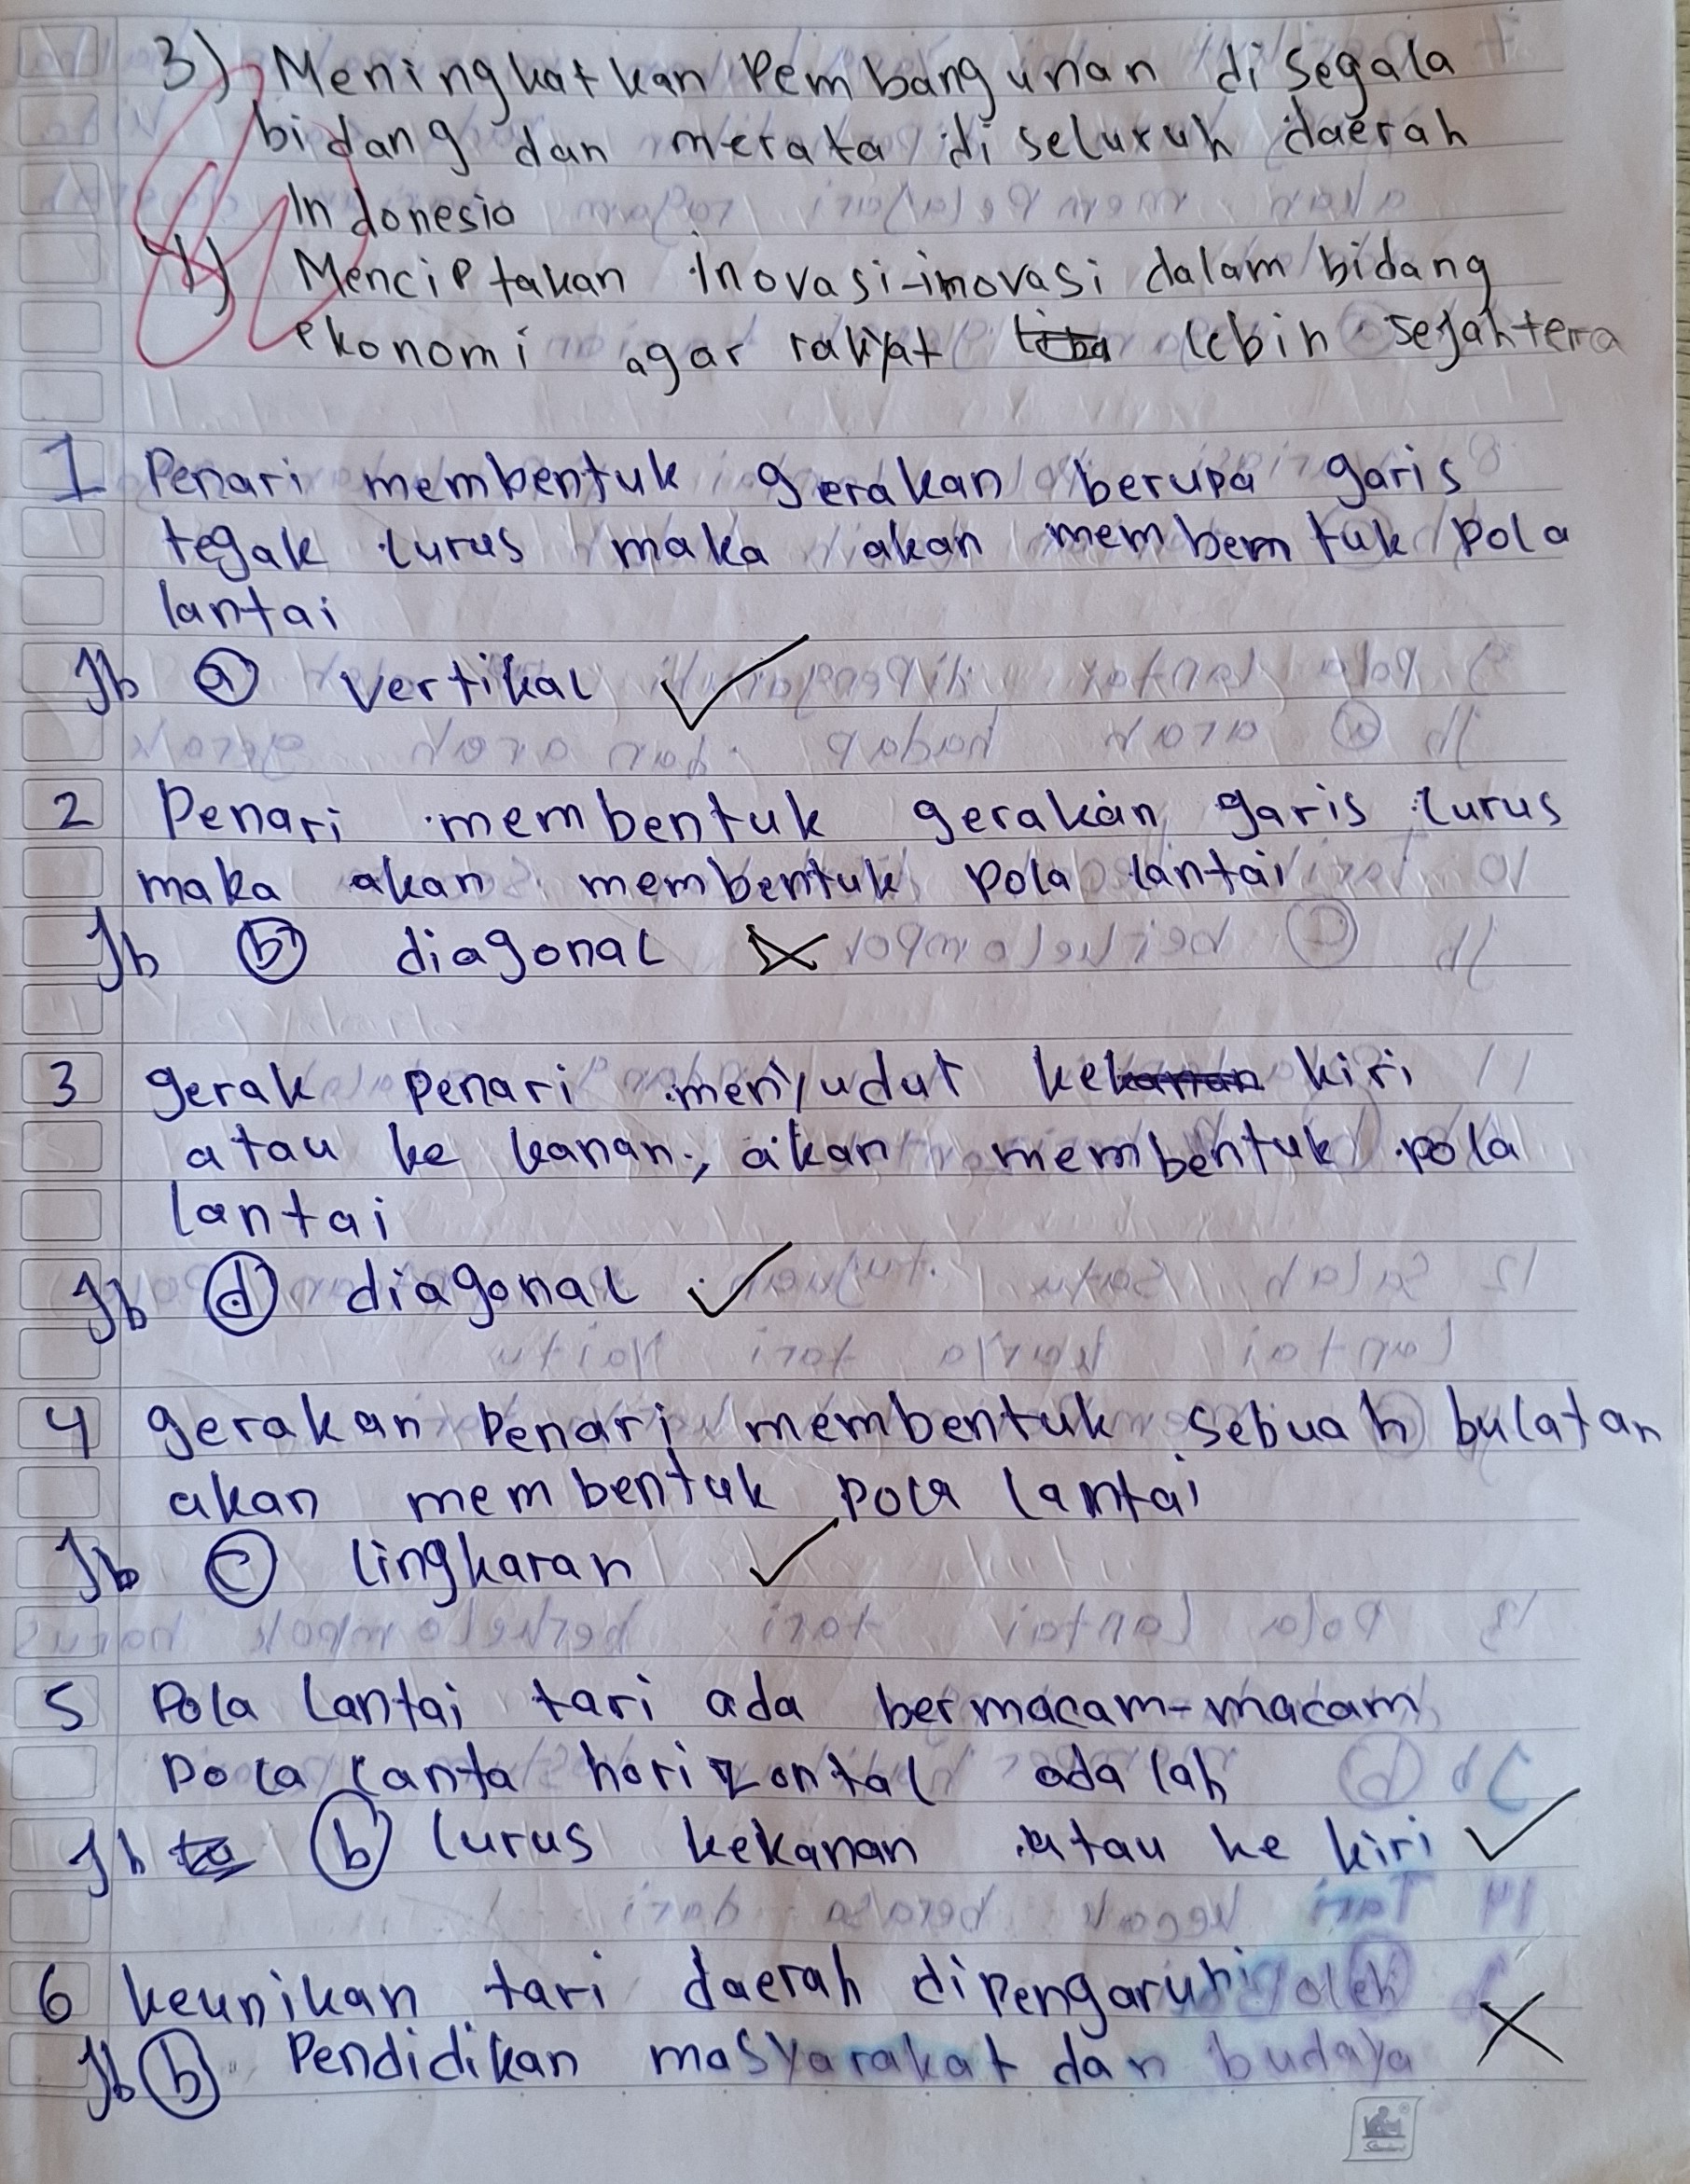 3) Meningkatkan Pembangunan di segala
bidang dan merata di seluruh daerah
Indonesia
4) Menciptakan inovasi-inovasi dalam bidang
ekonomi agar rakyat lebih sejahtera
1 Penari membentuk gerakan berupa garis
tegak lurus maka akan membemtuk pola
lantai
Jb a vertikal
2 Penari membentuk gerakan garis lurus
maka akan membentuk pola lantai
Jb b diagonal
3 gerak penari menyudut kekanan kiri
atau ke kanan, akan membentuk pola
lantai
Jb d diagonal
4 gerakan Penari membentuk sebuah bulatan
akan membentuk pola lantai
Jb c lingkaran
5 Pola lantai tari ada bermacam-macam
Pola lanta horizontal adalah
Jb b lurus kekanan atau ke kiri
6 keunikan tari daerah dipengaruhi oleh
Jb b Pendidikan masyarakat dan budaya